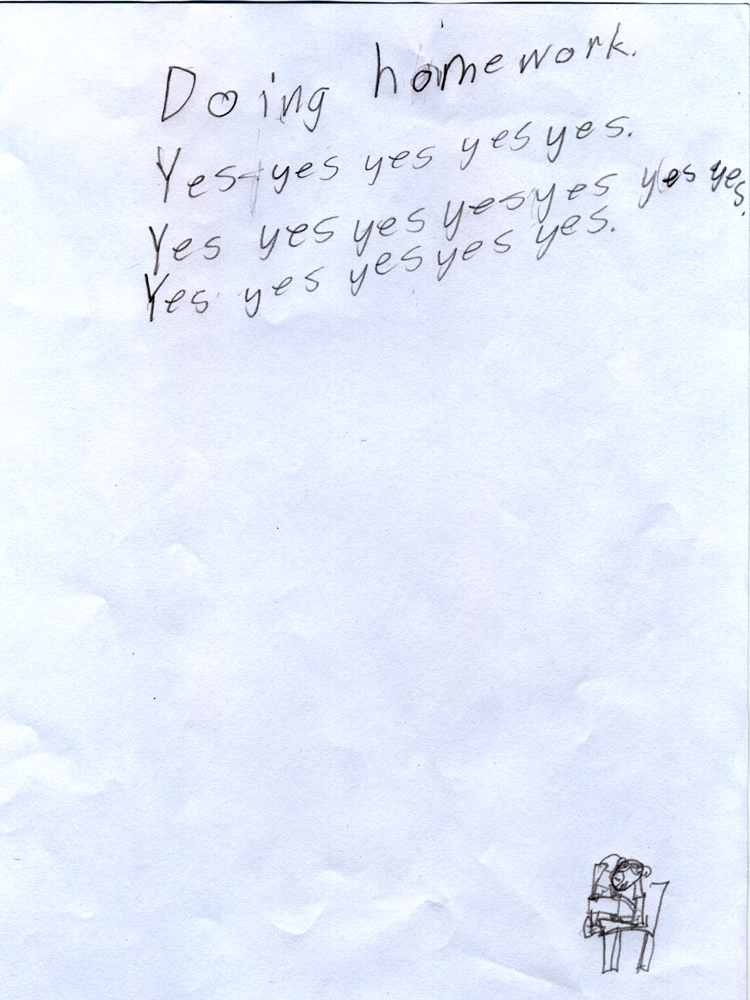 Doing homework.
Yes yes yes yes yes.
Yes yes yes yes yes yes yes.
Yes yes yes yes yes.